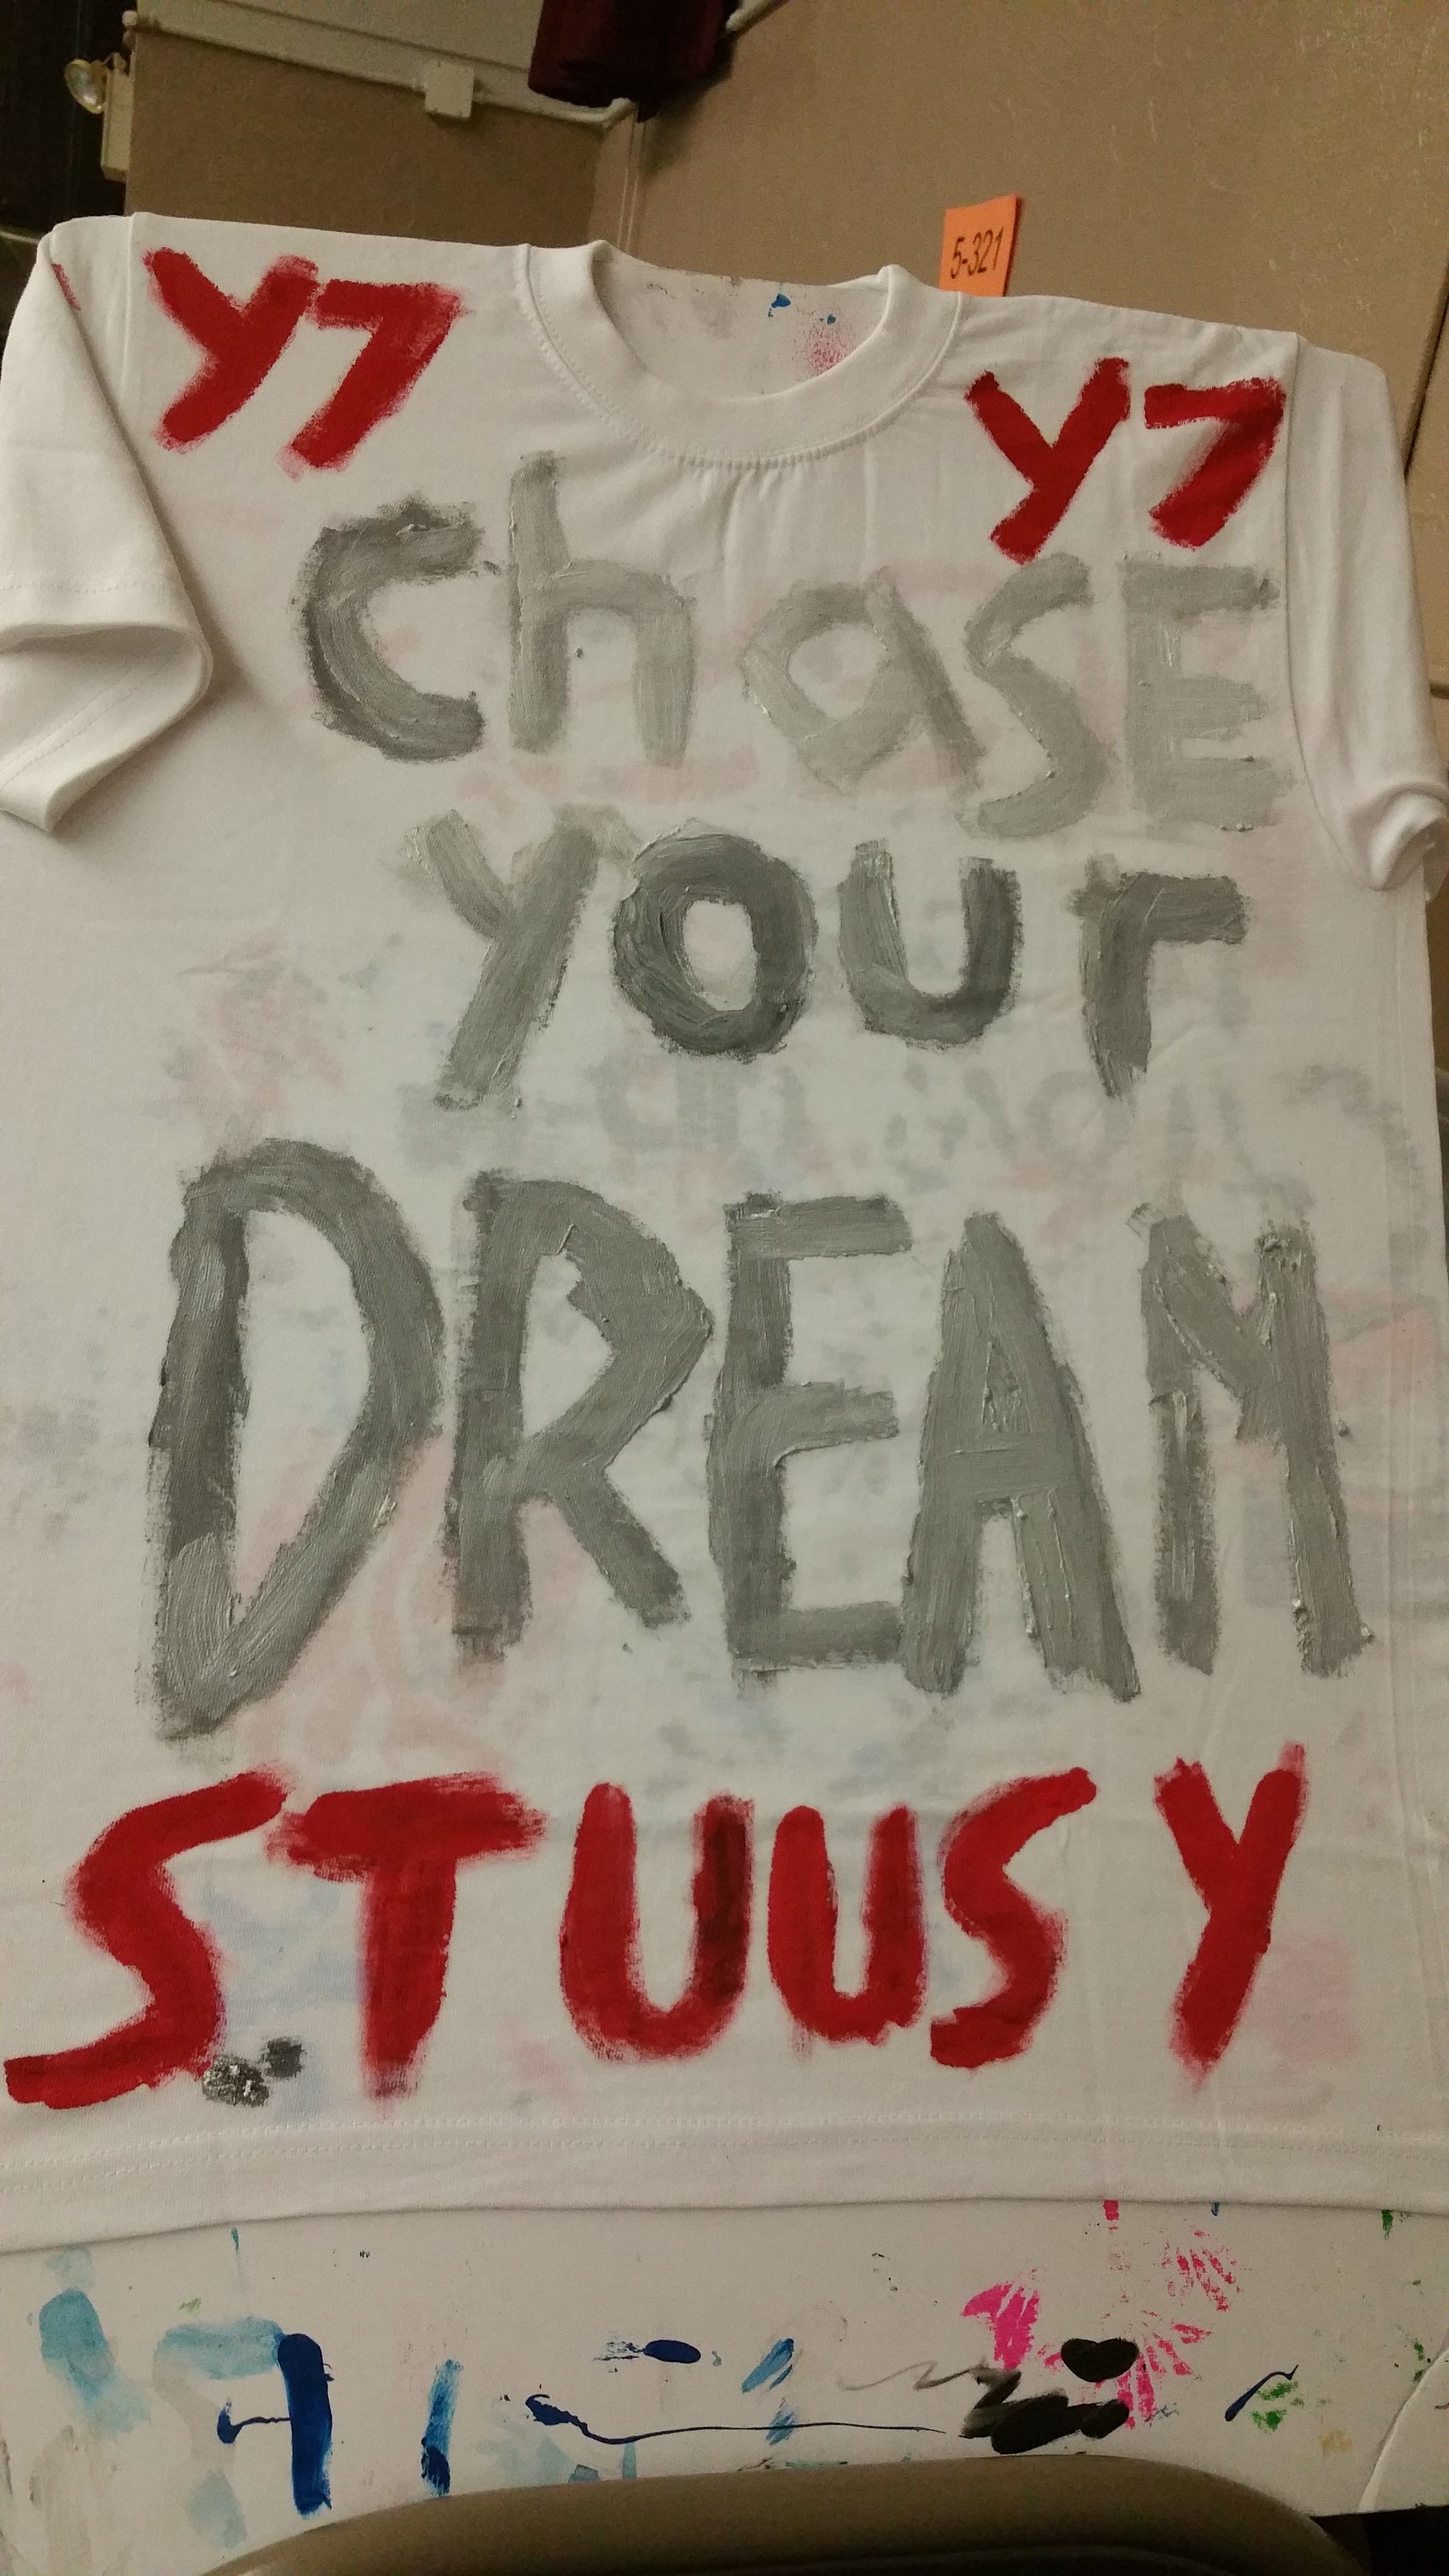 5-321
Y7 Y7
chasE
your
DREAM
STUUSY